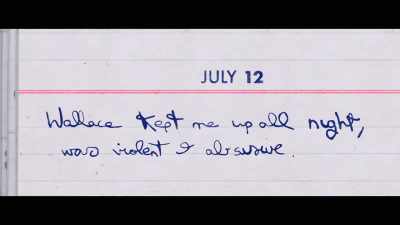 JULY 12
Wallace kept me up all night,
was violent & abusive.